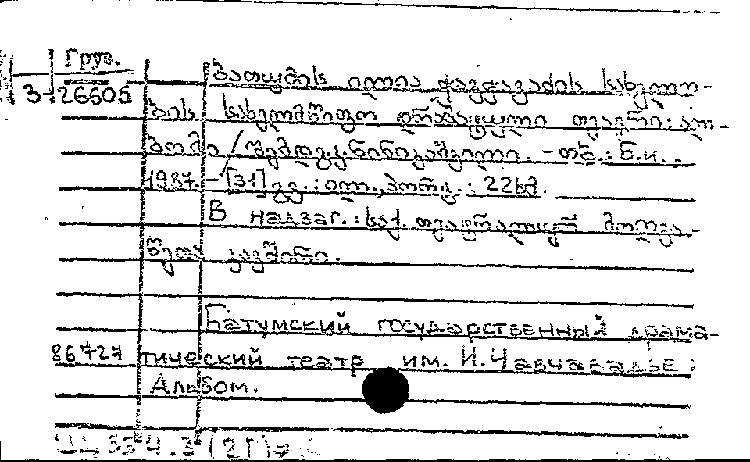 Груз.
3-26605
ბათუმის ილია ჭავჭავაძის სახელო-
ბის სახელმწიფო დრამატული თეატრი: ალ-
ბომი / შემდგ. ე. ნინიკაშვილი. - თბ.: Б.и.,
1987. - [31] გვ.: ილ., პორტ.; 22სმ.
В надзаг.: საქ. თეატრალურ მოღვა-
წეთა კავშირი.
Батумский государственный драма-
86727 тический театр им. И.Чавчавадзе:
Альбом.
Щ334.3(2Г)7